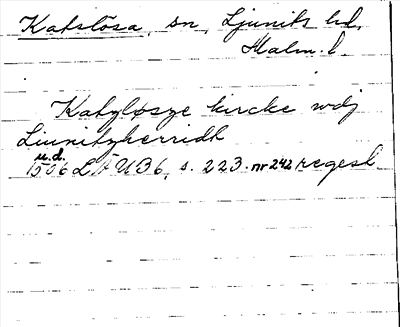 Katslösa, sn, Ljunits hd,
Malm. l.
Katzløsze kircke wdj
Liunitzherridt
u.d.
1506 LÄUB 6, s. 223. nr 242 regest